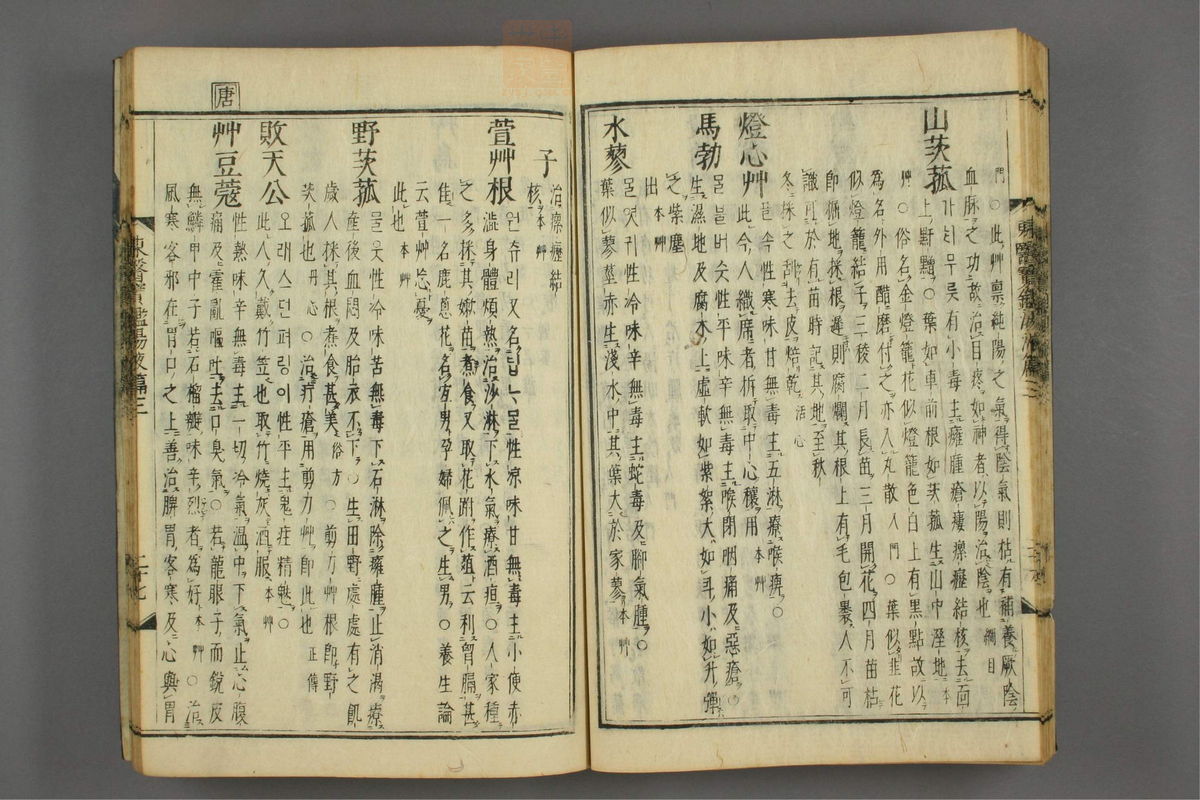 門○此艸禀純陽之氣得陰氣則枯有補養厥陰
血脉之功故治目疼如神者以陽治陰也綱目
山茨菰
가최무롯有小毒主癰腫瘡瘻瘰癧結核去面
上野黯○葉如車前根如茨菰生山中溼地本
艸○俗名金燈籠花似燈籠色白上有黒點故以
為名外用醋磨付之亦入丸散入門○葉似韭花
似燈籠結子三稜二月長苗三月開花四月苗枯
即掘地採根遲則腐爛其根上有毛包裹人不可
識可於有苗時記其地至秋
冬採之刮去皮焙乾活心
燈心艸
골속性寒味甘無毒主五淋療喉痺○
此今人織席者拆取中心穰用本艸
馬勃
믈블버슷性平味辛無毒主喉閉咽痛及惡瘡○
生濕地及腐木上虛軟如紫絮大如斗小如升彈
之紫塵
出本艸
水蓼
믈엿귀性冷味辛無毒主蛇毒及腳氣腫○
葉似蓼莖赤生淺水中其葉大於家蓼本艸
子
治瘰癧結
核本艸
萱艸根
원츄리又名넙ᄂᆞ믈性凉味甘無毒主小便赤
澁身體煩熱治沙淋下水氣療酒疸○人家種
之多採其嫩苗煮食又取花跗作葅云利胷膈甚
佳一名鹿葱花名宜男孕婦佩之生男○養生論
云萱艸忘憂
此也本艸
野茨菰
믈읏性冷味苦無毒下石淋除癰腫止消渴療
產後血悶及胎衣不下○生田野處處有之飢
歲人採其根煮食甚美俗方○剪刀艸根即野
茨菰也丹心○治疔瘡用剪刀艸即此也正傳
敗天公
오래스던퍼랑이性平主鬼疰精魅○
此人久戴竹笠也取竹燒灰酒服本艸
唐
艸豆蔻
性熱味辛無毒主一切冷氣溫中下氣止心腹
痛及霍亂嘔吐去口臭氣○若龍眼子而銳皮
無鱗甲中子若石榴瓣味辛烈者為好本艸○治
風寒客邪在胃口之上善治脾胃客寒及心與胃
東醫寶鑑湯液篇三
二十七